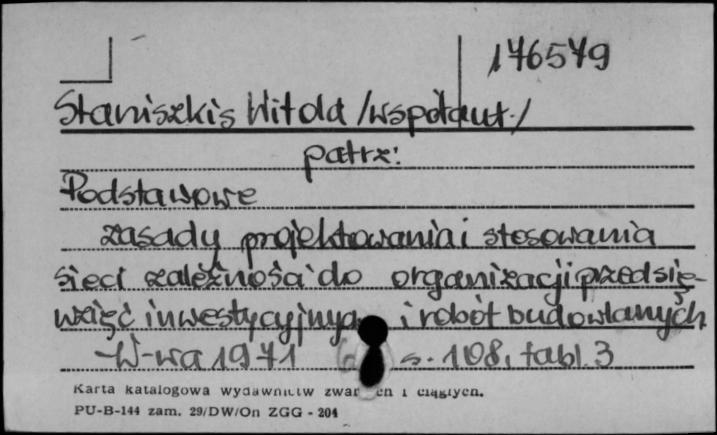 176579
Staniszkis Witold /współaut./
patrz:
Podstawowe
zasady projektowania i stosowania
sieci zależności do organizacji przedsię-
wzięć inwestycyjnych i robót budowlanych
W-wa 1971 s. 108, tabl. 3
Karta katalogowa wydawnictw zwartych i ciągłych.
PU-B-144 zam. 29/DW/On ZGG - 204